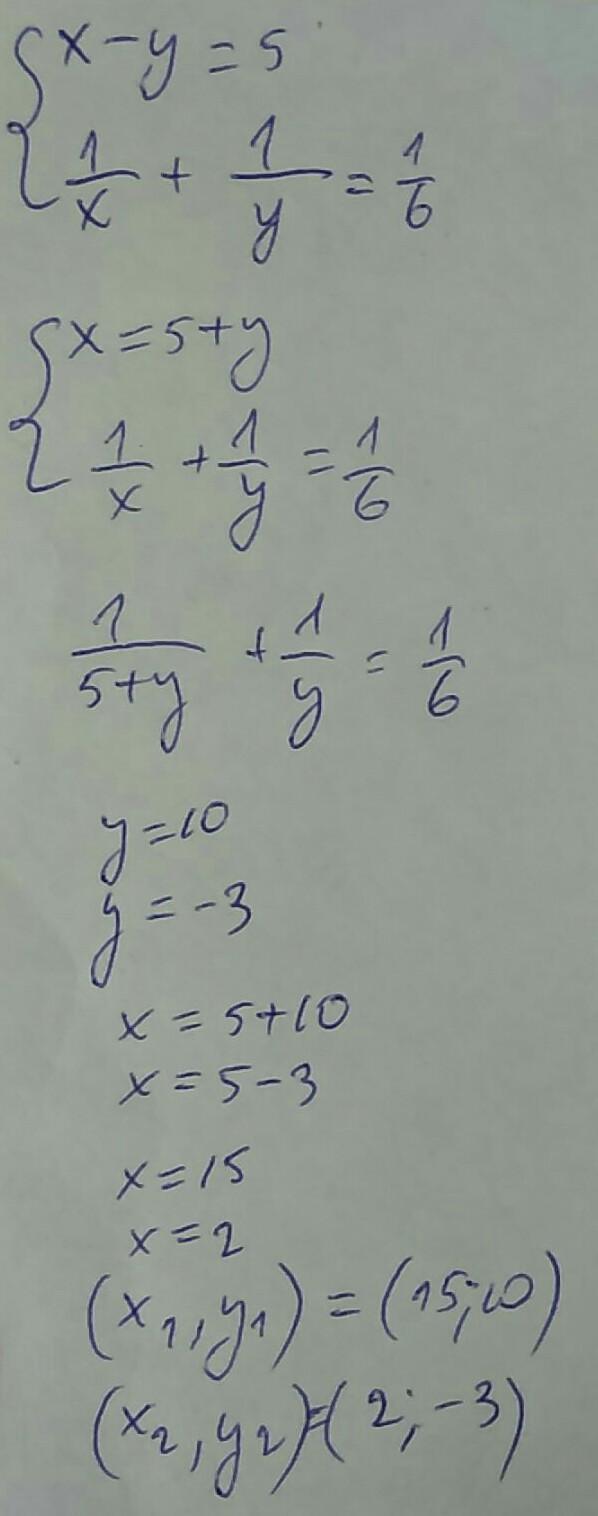 { x - y = 5
1/x + 1/y = 1/6
{ x = 5 + y
1/x + 1/y = 1/6
1/(5+y) + 1/y = 1/6
y = 10
y = -3
x = 5 + 10
x = 5 - 3
x = 15
x = 2
(x₁, y₁) = (15; 10)
(x₂, y₂) = (2; -3)